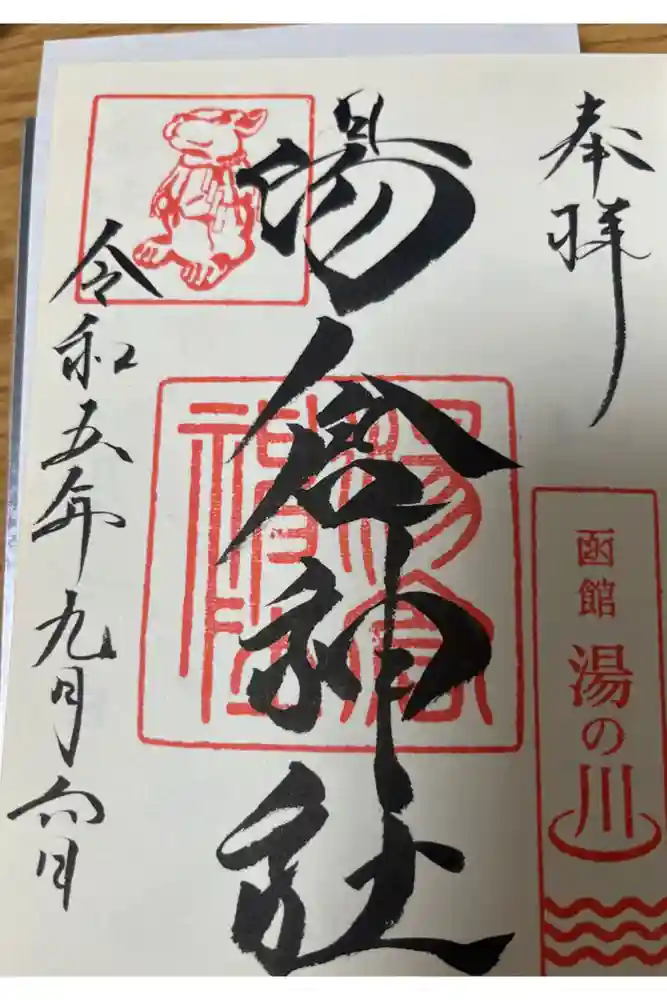 奉拝
函館
湯の川
湯倉神社
湯倉
神社
令和五年九月六日